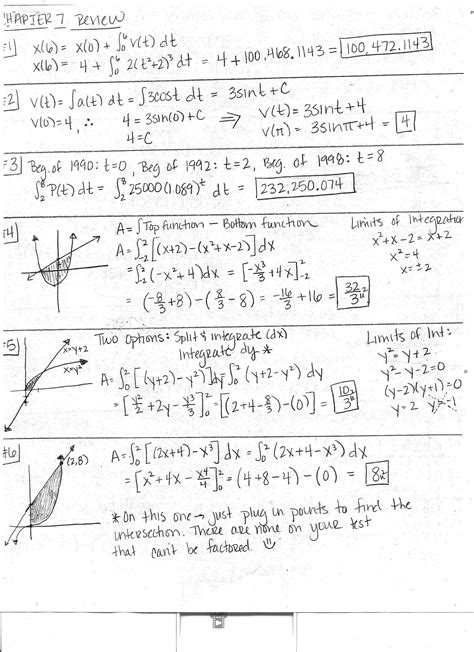 CHAPTER 7 Review
#1) x(6) = x(0) + ∫₀⁶ v(t) dt
x(6) = 4 + ∫₀⁶ 2(t²+2)³ dt = 4 + 100,468.1143 = 100,472.1143
#2) v(t) = ∫a(t) dt = ∫3cost dt = 3sint + C
v(0)=4, ∴ 4 = 3sin(0)+C ⇒ v(t) = 3sint+4
4=C v(π) = 3sinπ+4 = 4
#3) Beg. of 1990: t=0, Beg. of 1992: t=2, Beg. of 1998: t=8
∫₂⁸ P(t) dt = ∫₂⁸ 25000(1.089)ᵗ dt = 232,250.074
#4 A = ∫Top function – Bottom function Limits of Integration
A = ∫₋₂² [(x+2) – (x²+x-2)] dx x²+x-2 = x+2
= ∫₋₂² (-x²+4) dx = [-x³/3 + 4x]₋₂² x²=4
x=±2
= (-8/3+8) – (8/3-8) = -16/3 + 16 = 32/3 u²
#5 Two Options: Split & integrate (dx) Limits of Int:
Integrate dy * y² = y+2
x=y+2
x=y²
A = ∫₀² [(y+2) – y²] dy ∫₀² (y+2-y²) dy y²-y-2=0
= [y²/2 + 2y – y³/3]₀² = [(2+4-8/3) – (0)] = 10/3 u² (y-2)(y+1)=0
y=2 y=-1
#6) A = ∫₀² [(2x+4) – x³] dx = ∫₀² (2x+4-x³) dx
(2,8)
= [x²+4x – x⁴/4]₀² = (4+8-4) – (0) = 8u²
* On this one → just plug in points to find the
intersection. There are none on your test
that can't be factored. ☺